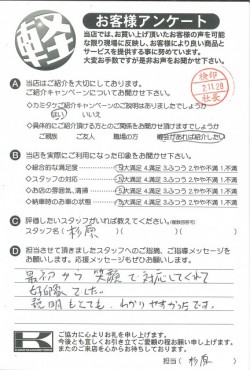 軽
お客様アンケート
当店では、お買い上げ頂いたお客様の声を可能
な限り現場に反映し、お客様により良い商品と
サービスを提供する事に努めています。
大変お手数ですが是非お声をお聞かせ下さい。
検印
2.11.28
社長
A 当店はご紹介を大切にしております。
ご紹介キャンペーンについてお聞かせ下さい。
・カミタケご紹介キャンペーンのご説明はありましたでしょうか
はい いいえ
◇具体的にご紹介頂ける方とのご関係をお聞かせ頂けますでしょうか
ご親族 ご友人 職場の方 機会があれば紹介したい
B 当店を実際にご利用になった印象をお聞かせ下さい。
◇総合的な満足度 5大満足 4.満足 3.ふつう 2.やや不満 1.不満
◇スタッフの対応 5大満足 4.満足 3.ふつう 2.やや不満 1.不満
◇お店の雰囲気、清掃 5大満足 4.満足 3.ふつう 2.やや不満 1.不満
◇納車時のお車の状態 5大満足 4.満足 3.ふつう 2.やや不満 1.不満
C 評価したいスタッフがいれば教えてください。(複数回答可)
スタッフ名( 杉原 )
D 担当させて頂きましたスタッフへのご指摘、ご指導メッセージを
お願いします。応援メッセージもぜひお願いします。
最初から笑顔で対応してくれて
好印象でした。
説明もとても、わかりやすかったです。
K
ご協力に心よりお礼を申し上げます。
今後とも宜しくお引き立てご愛顧の程お願い申し上げます。
またのご来店を心からお待ちしております。
担当( 杉原 )